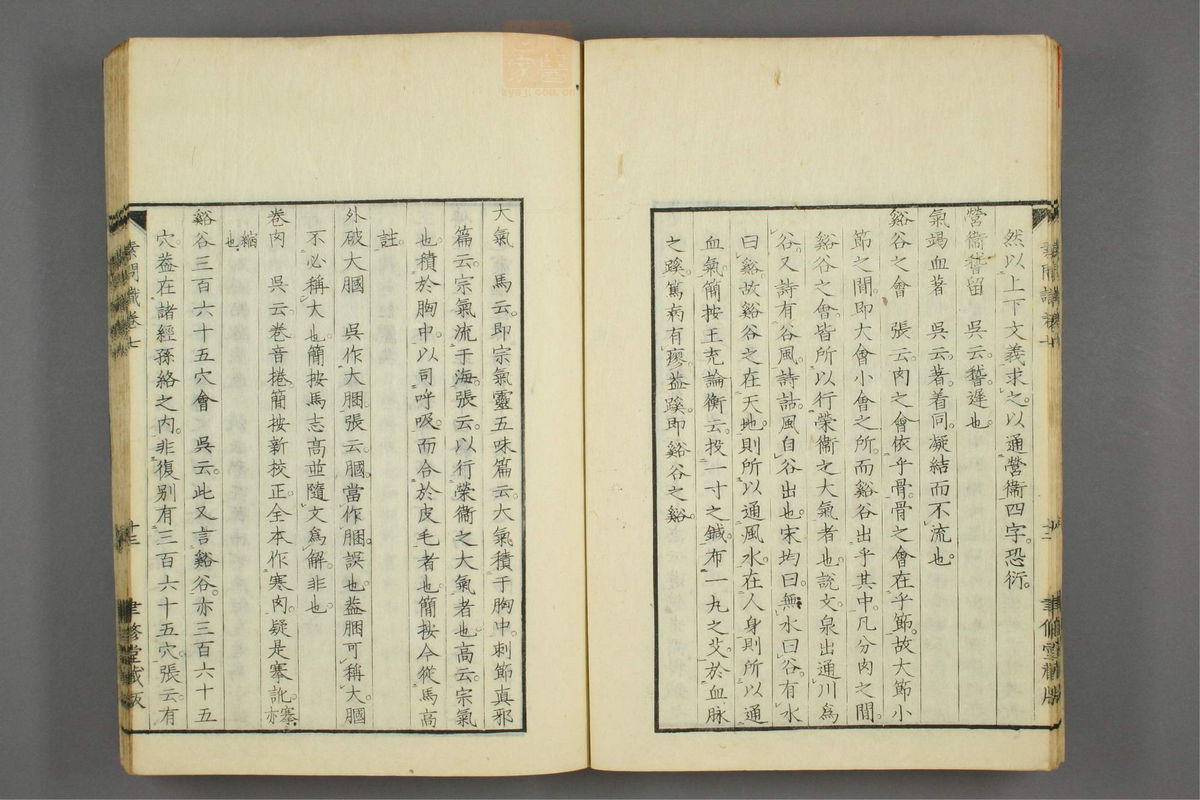 然以上下文義求之。以通營衞四字。恐衍。
營衞稽留　吳云。稽。遲也。
氣竭血著　吳云。著。着同。凝結而不流也。
谿谷之會　張云。肉之會依乎骨。骨之會在乎節。故大節小
節之間。即大會小會之所。而谿谷出乎其中。凡分肉之間。
谿谷之會。皆所以行榮衞之大氣者也。說文泉出通川爲
谷。又詩有谷風。詩詁。風自谷出也。宋均曰。無水曰谷。有水
曰谿。故谿谷之在天地。則所以通風水。在人身。則所以通
血氣。簡按王充論衡云。投一寸之鍼。布一丸之艾。於血脉
之蹊。篤病有瘳。葢蹊。即谿谷之谿。
大氣　馬云。即宗氣。靈五味篇云。大氣積于胸中。刺節眞邪
篇云。宗氣流于海。張云。以行榮衞之大氣者也。高云。宗氣
也。積於胸中。以司呼吸。而合於皮毛者也。簡按今從馬高
註。
外破大膕　吳作大䐃。張云。膕。當作䐃。誤也。葢䐃可稱大。膕
不必稱大也。簡按馬志高並隨文爲解。非也。
卷肉　吳云。卷音捲。簡按新校正。全本作寒肉。疑是搴訛。搴亦
縮也
谿谷三百六十五穴會　吳云。此又言谿谷。亦三百六十五
穴。葢在諸經孫絡之内。非復別有三百六十五穴。張云。有
素問識卷七
廿三
聿修堂藏版